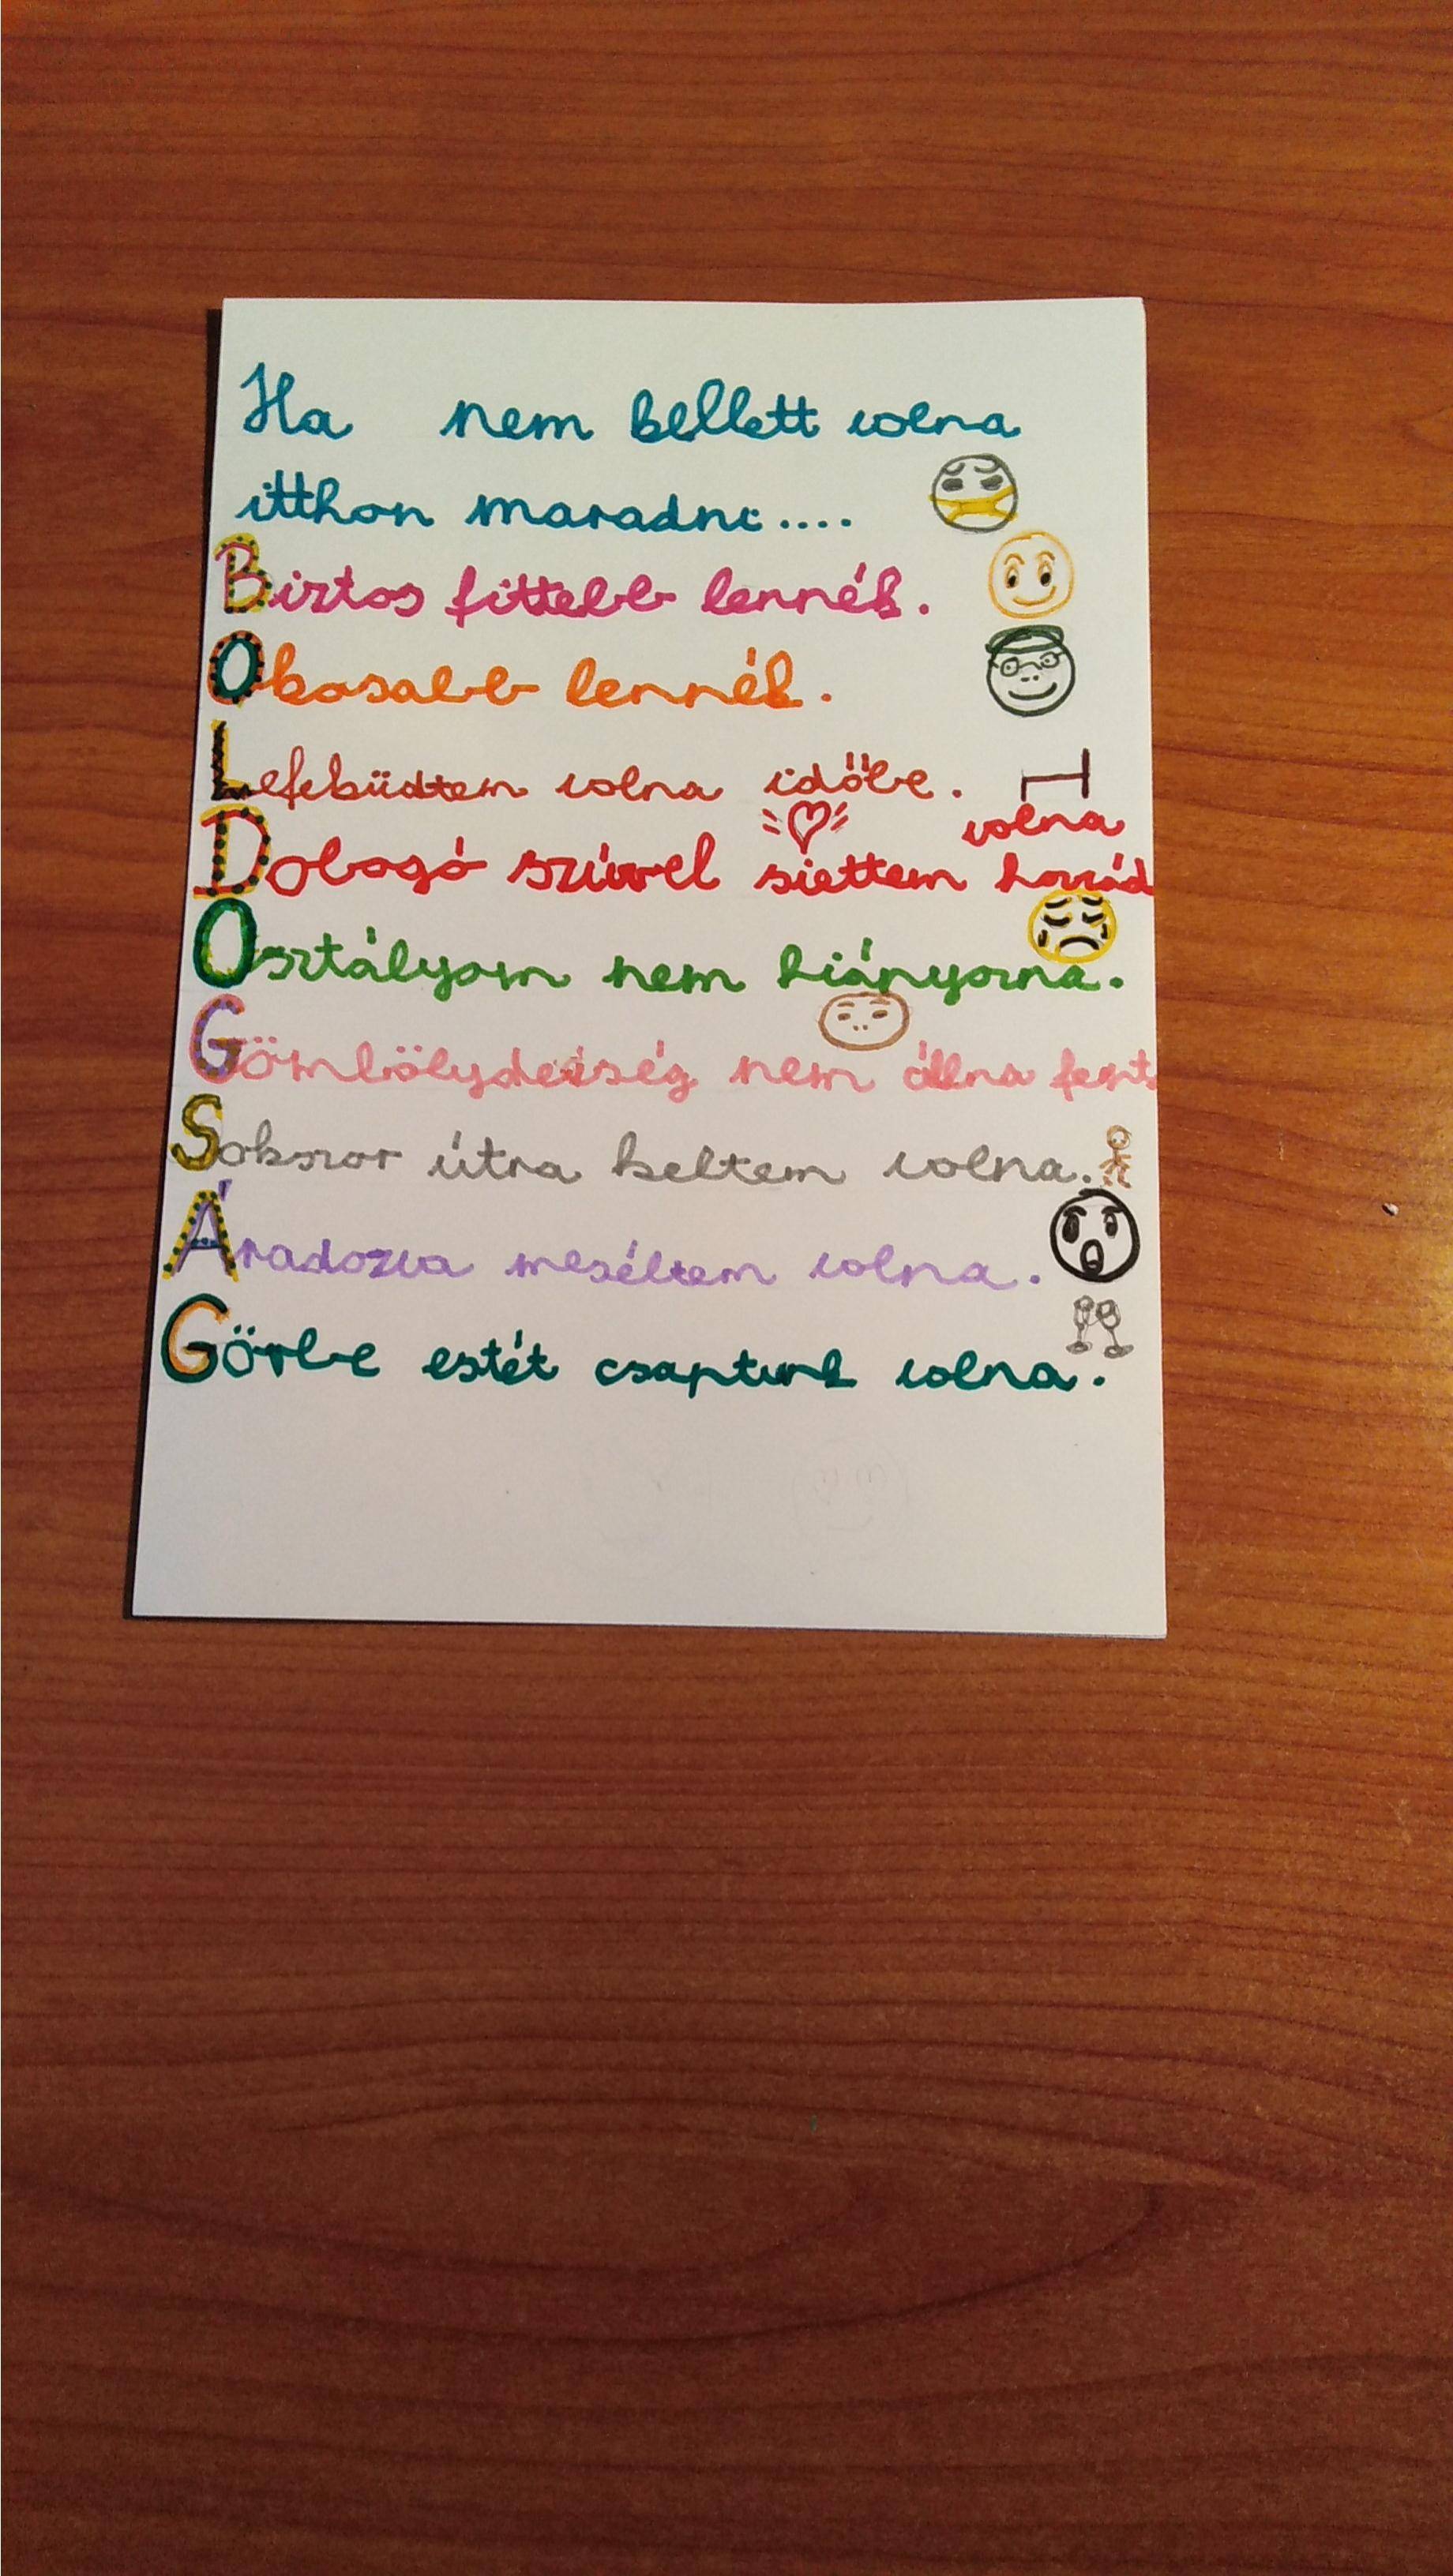 Ha nem kellett volna
itthon maradni....
Biztos fittebb lennék.
Okosabb lennék.
Lefeküdtem volna időbe.
volna
Dobogó szívvel siettem hozzád
Osztályom nem hiányozna.
Gömbölydedség nem állna fent
Sokszor útra keltem volna.
Áradozva meséltem volna.
Görbe estét csaptunk volna.